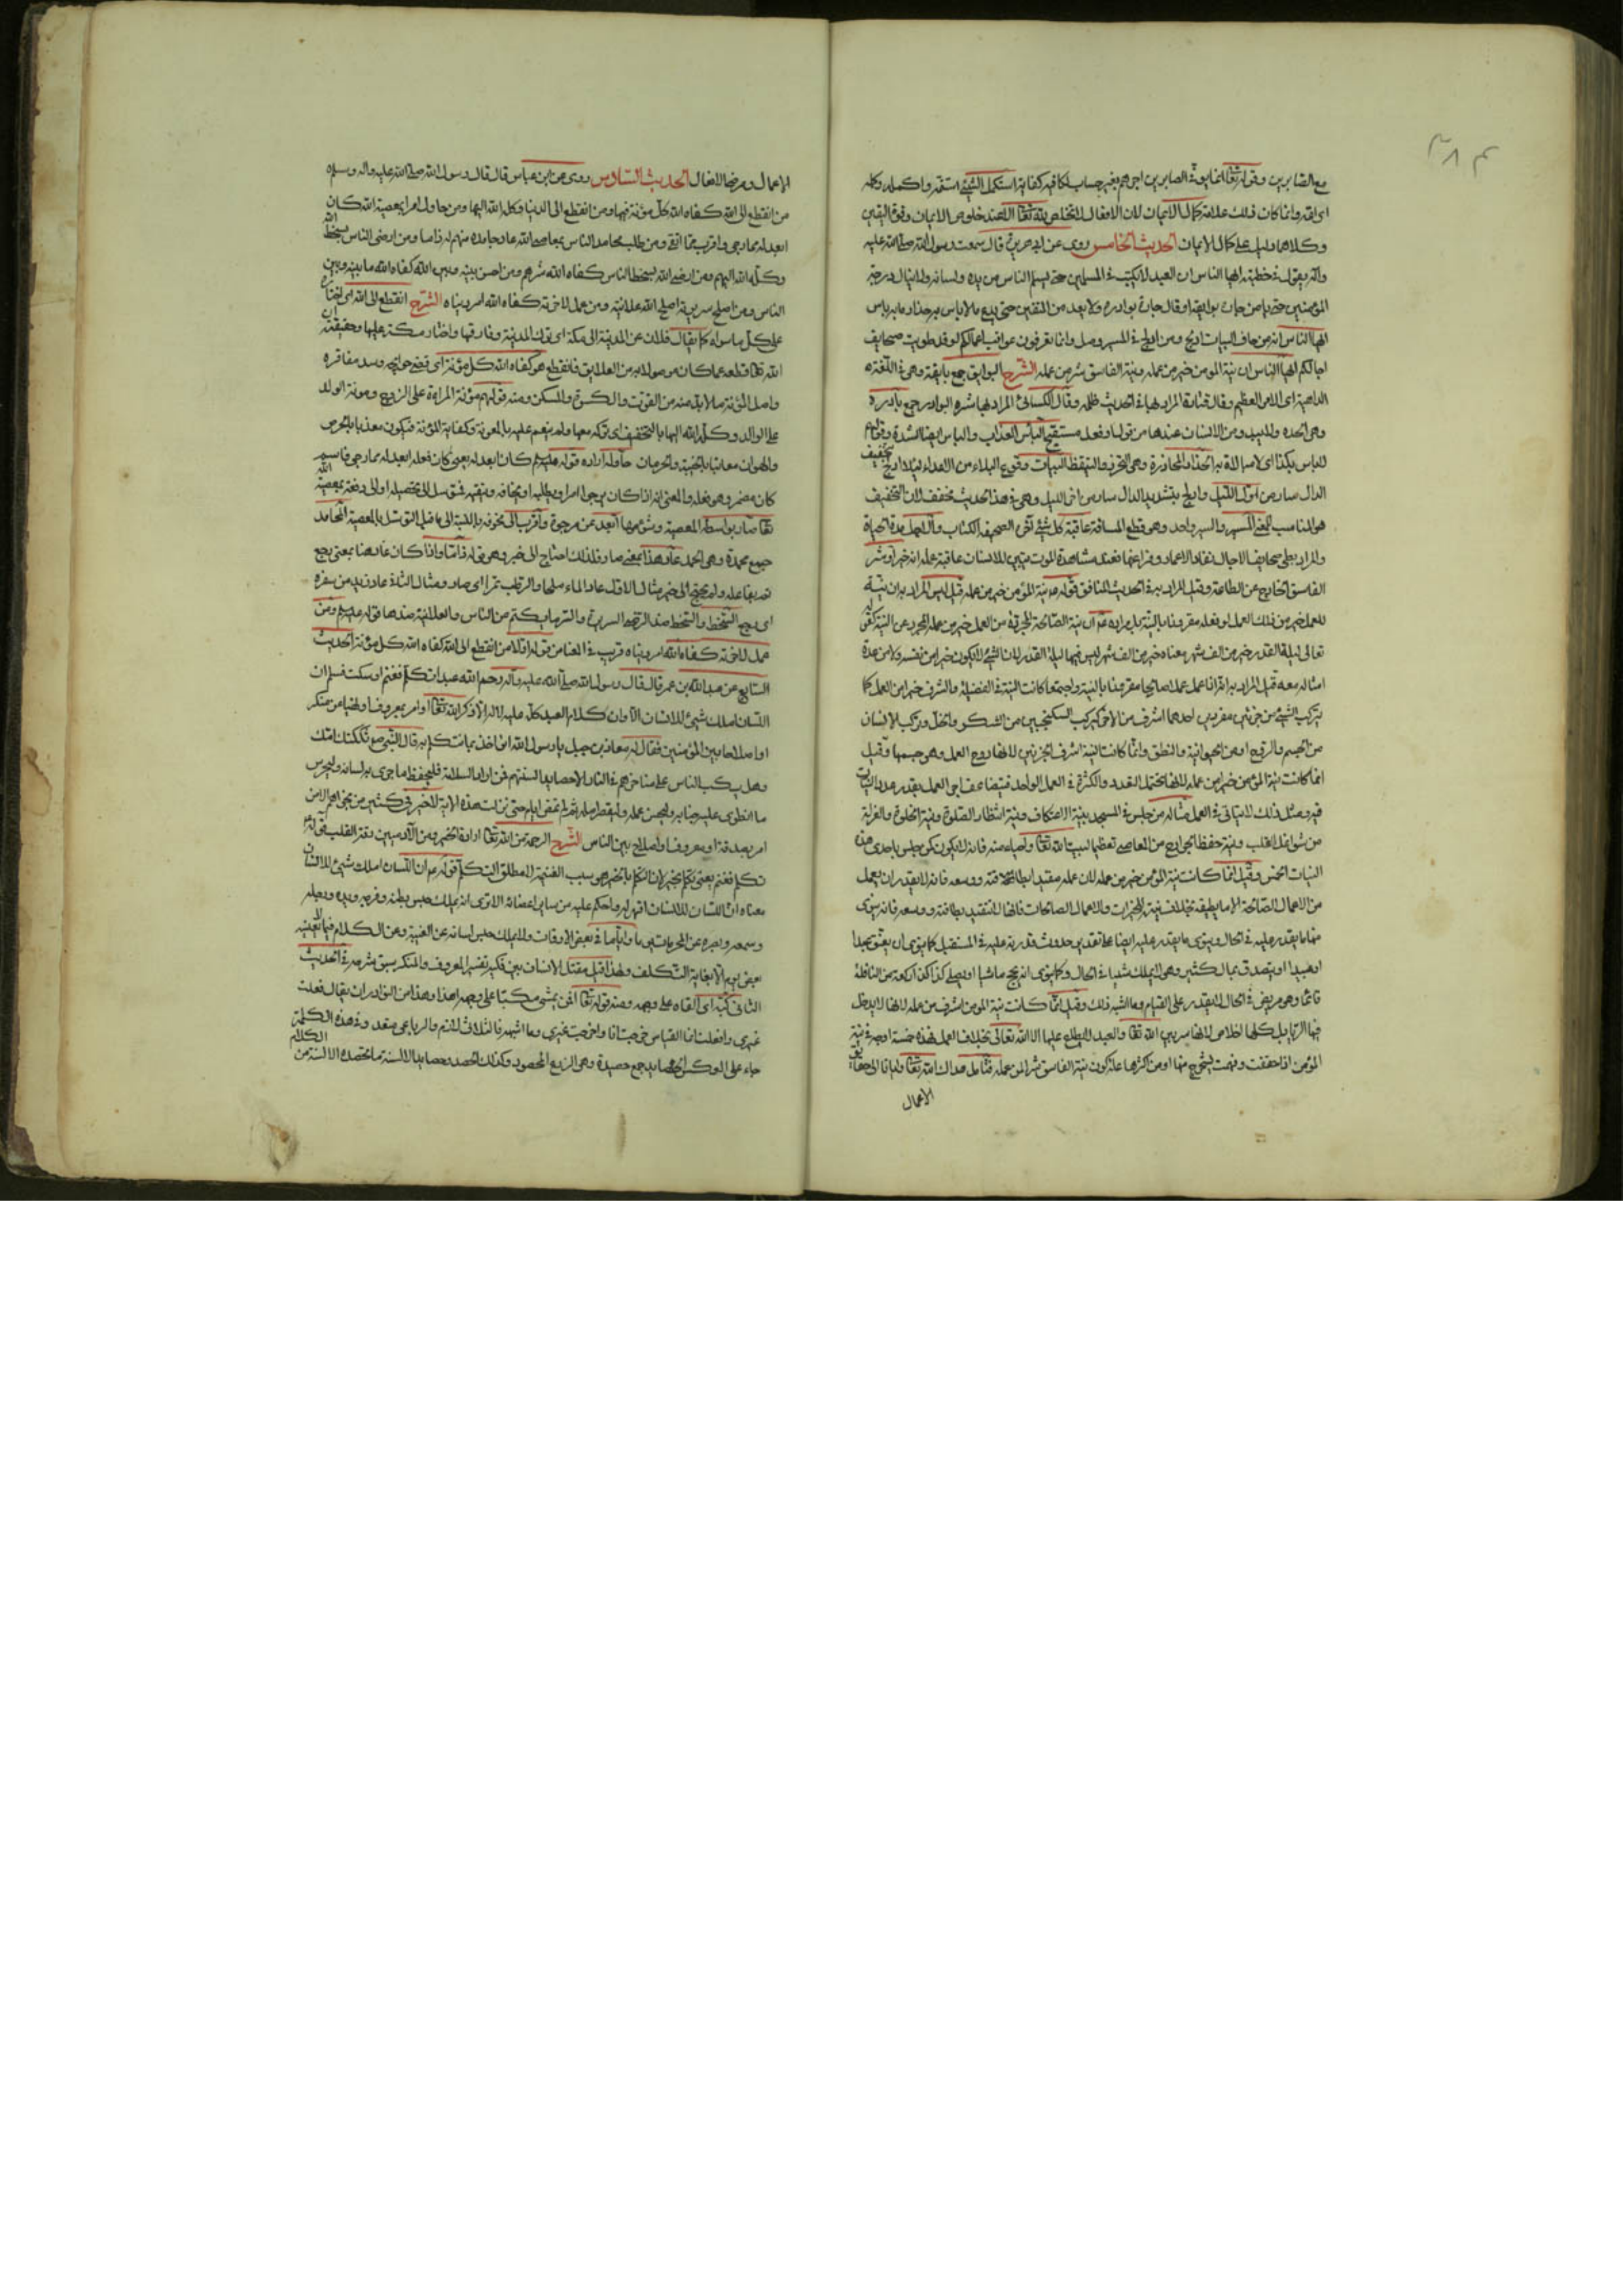 مع الصابرين وقوله تعالى انما يوفى الصابرين اجرهم بغير حساب اى كافيه كفاية استكمل الشئ استتمه واكمله وكله
وانما كان ذلك علامة كمال الايمان لان الافعال لا تخلص لله تعالى الا عند خلوص الايمان وقوة اليقين
وكلاهما دليل على كمال الايمان الحديث الخامس روى عن ابى هريرة قال سمعت رسول الله صلى الله عليه
وآله يقول فى خطبته ايها الناس ان العبد لا يكتب فى المسلمين حتى يسلم الناس من يده ولسانه ولا ينال درجة
المؤمنين حتى يامن جاره بوائقه او قال جاره بوادره ولا يعد من المتقين حتى يدع ما لا باس به حذار ما به باس
ايها الناس انه من خاف البيات ادلج ومن ادلج فى المسير وصل وانما تعرفون عواقب اعمالكم لو قد طويت صحايف
اجالكم ايها الناس ان نية المومن خير من عمله ونية الفاسق شر من عمله الشرح البوايق جمع بايقة وهى فى اللغة
الداهية اى الامر العظيم وقال قتادة المراد بها فى الحديث ظلمه وقال الكسائى المراد بها شره البوادر جمع بادرة
وهى الحدة من الانسان عند من قول او فعل مستقبح البأس العذاب والباس ايضا الشدة وقولهم
لا باس بكذا اى لا مبالاة به الحذار المحاذرة وهى التحرز والتيقظ البيات وقوع البلاء من الاعداء ليلا ادلج بتخفيف
الدال سار من اول الليل وادلج بتشديد الدال سار من اخر الليل وهى فى هذا الحديث مخفف لان التخفيف
هو المناسب المسير والسير واحد وهو قطع المسافة عاقبة كل شئ آخره الصحيفة الكتاب والاجل مدة الحياة
والمراد بطى صحايف الاجال نفاد الاعمار وفراغها فعند مشاهدة الموت يتبين للانسان عاقبة عمله انه خير او شر
الفاسق الخارج عن الطاعة وقيل المراد به فى الحديث المنافق قوله نية المؤمن خير من عمله قيل ليس المراد به ان نية
العمل خير من ذلك العمل لو فعله مقرونا بالنية بل مراده ان النية الصالحة المجردة من العمل خير من عمله المجرد عن النية كقوله
تعالى ليلة القدر خير من الف شهر معناه خير من الف شهر ليس فيها ليلة القدر لان الشئ لا يكون خيرا من نفسه
امثاله معه قيل المراد به اذا عمل عملا صالحا مقرونا بالنية واجتمعا كانت النية فى الفضيلة والشرف خير من العمل كما
يتركب الشئ من جزئين مفردين احدهما اشرف من الاخر كتركب السكنجبين من السكر والخل وتركب الانسان
من الجسم والروح او من الحيوانية والنطق وانما كانت النية اشرف الجزءين لانها روح العمل وهو جسمها وقيل
انما كانت نية المؤمن خير من عمله لانها تحتمل التعدد والكثرة فى العمل الواحد فيتضاعف اجر العمل بقدر عدد النيات
فيه ومثل ذلك لا يتاتى فى العمل مثاله من جلس فى المسجد بنية الاعتكاف ونية انتظار الصلوة ونية الخلوة والعزلة
من شواغل القلب ونية حفظ الجوارح من المعاصى تعظيما لبيت الله تعالى وحياء منه فانه لا يكون كمن جلس باحدى هذه
النيات الخمس وقيل انما كانت نية المؤمن خير من عمله لان عمله مقيد بطاقته ووسعه فانه لا يقدر ان يعمل
من الاعمال الصالحة الا ما يطيقه بخلاف نيته للخيرات والاعمال الصالحات فانها لا تتقيد بطاقته ووسعه فانه ينوى
منها ما يقدر عليه فى الحال وينوى ما يقدر عليه ايضا على تقدير حدوث قدرته عليه فى المستقبل كما ينوى ان يعتق عبدا
او عبيدا او يتصدق بمال كثير وهو لا يملك شيئا فى الحال وكما ينوى انه يحج ماشيا او يصلى كذا كذا ركعة من النافلة
قائما وهو مريض فى الحال لا يقدر على القيام وما اشبه ذلك وقيل انما كانت نية المؤمن اشرف من عمله لانها لا يدخل
فيها الرياء بل كلها اخلاص لانها سر بين الله تعالى والعبد لا يطلع عليها الا الله تعالى بخلاف العمل فهذه خمسة اوجه فى نية
المؤمن اذا حققت وفهمت يتخرج منها او من اكثرها علة كون نية الفاسق شر من عمله فتامل هداك الله تعالى وايانا الى حقائق
الاعمال
الاعمال ومرضا الافعال الحديث السادس روى عن ابن عباس قال قال رسول الله صلى الله عليه واله وسلم
من انقطع الى الله كفاه الله كل مؤنة فيها ومن انقطع الى الدنيا وكله الله اليها ومن حاول امرا بمعصية الله كان
ابعد له مما رجى واقرب مما اتقى ومن طلب محامد الناس بمعاصى الله عاد حامده منهم له ذاما ومن ارضى الناس بسخط الله
وكله الله اليهم ومن ارضى الله بسخط الناس كفاه الله شرهم ومن احسن بينه وبين الله كفاه الله ما بينه وبين
الناس ومن اصلح سريرته اصلح الله علانيته ومن عمل لاخرته كفاه الله امر دنياه الشرح انقطع الى الله اى
على كل ما سواه كما يقال فلان عن المدينة الى مكة اى ترك المدينة وفارقها واختار مكة عليها وحقيقته
الله تعالى قطعه عما كان موصولا به من العلايق فانقطع هو كفاه الله كل مؤنة اى قضى حوايجه وسد مفاقره
واصل المؤنة ما لا بد منه من القوت والكسوة والمسكن ومنه قولهم مؤنة المراءة على الزوج ومونة الولد
على الوالد وكله الله اليها بالتخفيف اى تركه معها ولم ينعم عليه بالمعونة وكفاية المؤنة فيكون معذبا بالحرص
والهوان معاقبا بالخيبة والحرمان حاوله اراده قوله عليه السلام كان ابعد له يعنى كان فعله ابعد له مما رجى فاسم
كان مضمر وهو فعله والمعنى انه اذا كان يرجو امرا ويطلبه او يخافه ويتقيه فتوسل الى تحصيله او الى دفعه بمعصية الله
تعالى صار بواسطة المعصية وشؤمها ابعد عن مرجوه واقرب الى مخوفه بالنسبة الى ما قبل التوسل بالمعصية المحامد
جمع محمدة وهى الحمد عاد هذا بمعنى صار فلذلك احتاج الى خبر وهو قوله ذاما واذا كان عاد هنا بمعنى رجع
تم بفاعله ولم يحتج الى خبر مثال الاول عاد الماء ملحا والرطب تمرا اى صار ومثال الثانى عاد زيد من سفره
اى رجع السخط والسخط ضد الرضا السريرة والسر ما يكتم من الناس والعلانية ضدها قوله عليه السلام ومن
عمل لاخرته كفاه الله امر دنياه قريب فى المعنا من قوله اولا من انقطع الى الله كفاه الله كل مؤنة الحديث
السابع عن عبد الله بن عمر قال قال رسول الله صلى الله عليه وآله رحم الله عبدا تكلم فغنم او سكت فسلم ان
اللسان املك شئ للانسان الا وان كلام العبد كل عليه لا له الا ذكر الله تعالى او امر بمعروف او نهيا عن منكر
او اصلاحا بين المؤمنين فقال له معاذ بن جبل يا رسول الله انؤاخذ بما نتكلم به قال النبى صم ثكلتك امك
وهل يكب الناس على مناخرهم فى النار الا حصايد السنتهم فمن اراد السلامة فليحفظ ما جرى به لسانه وليحرس
ما انطوى عليه جنانه وليحسن عمله وليقصر امله ثم لم تمض ايام حتى نزلت هذه الاية لا خير فى كثير من نجواهم الا من
امر بصدقة او معروف او اصلاح بين الناس الشرح الرحمة من الله تعالى ارادة الخير ومن الآدميين رقة القلب قوله
تكلم فغنم يعنى تكلم بخير لان التكلم بالخير هو سبب الغنيمة لا مطلق التكلم قوله عم ان اللسان املك شئ للانسان
معناه ان اللسان للانسان اقهر له واحكم عليه من ساير اعضائه الا ترى انه يملك حبس بطنه وفرجه ويده ورجله
وسمعه وبصره عن المحرمات يوما واياما فى بعض الاوقات ولا يملك حبس لسانه عن الغيبة وعن الكلام فيما لا يعنيه
بعض يوم الا بغاية التكلف ولهذا قيل مقتل الانسان بين فكيه تفسير المعروف والمنكر سبق شرحه فى الحديث
الثانى كبه اى القاه على وجهه ومنه قوله تعالى افمن يمشى مكبا على وجهه اهدا وهذا من النوادر ان يقال فعلت
غيرى وافعلت انا القياس خرجت انا واخرجت غيرى وما اشبهه فالثلاثى لازم والرباعى متعد وفى هذه الكلمة
جاء على العكس الحصايد جمع حصيدة وهى الزرع المحصود وكذلك الحصد وحصايد الالسنة ما تحصده الالسنة من الكلام